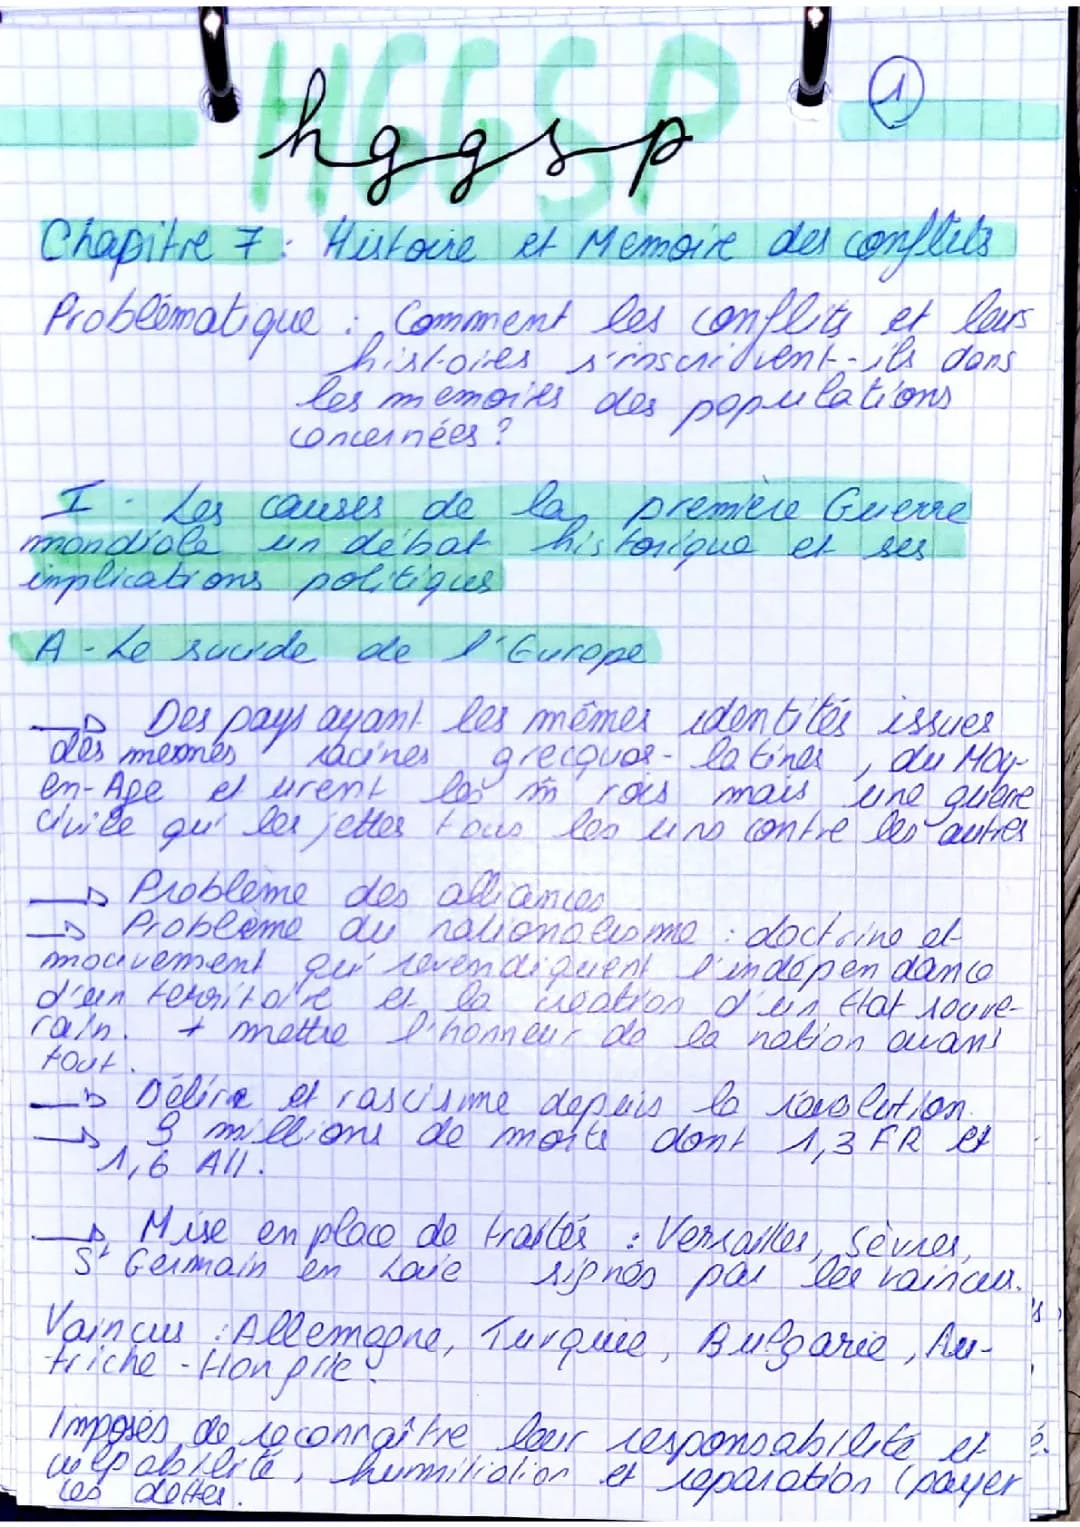 HGGSP
hggsp
1
Chapitre 7 : Histoire et Memoire des conflits
Problématique : Comment les conflits et leurs
histoires s'inscrivent-ils dans
les memoires des populations
concernées ?
I - Les causes de la première Guerre
mondiale un débat historique et ses
implications politiques
A - Le suicide de l'Europe
→ Des pays ayant les mêmes identités issues
des mesmes racines grecques-latines, du Moy-
en-Age et urent les m̄ rois mais une guerre
civile qui les jettes tous les uns contre les autres
→ Problème des alliances
→ Problème du nationalisme : doctrine et
mouvement qui revendiquent l'indépendance
d'un territoire et la création d'un Etat souve-
rain. + mettre l'honneur de la nation avant
tout.
→ Délire et rascisme depuis la révolution.
→ 9 millions de morts dont 1,3 FR et
1,6 All.
→ Mise en place de traités : Versailles, Sèvres,
St Germain en Laie signés par les vaincus.
Vaincus : Allemagne, Turquie, Bulgarie, Au-
triche-Hongrie.
Imposés de reconnaître leur responsabilité et
culpabilité, humiliation et reparation (payer
les dettes.